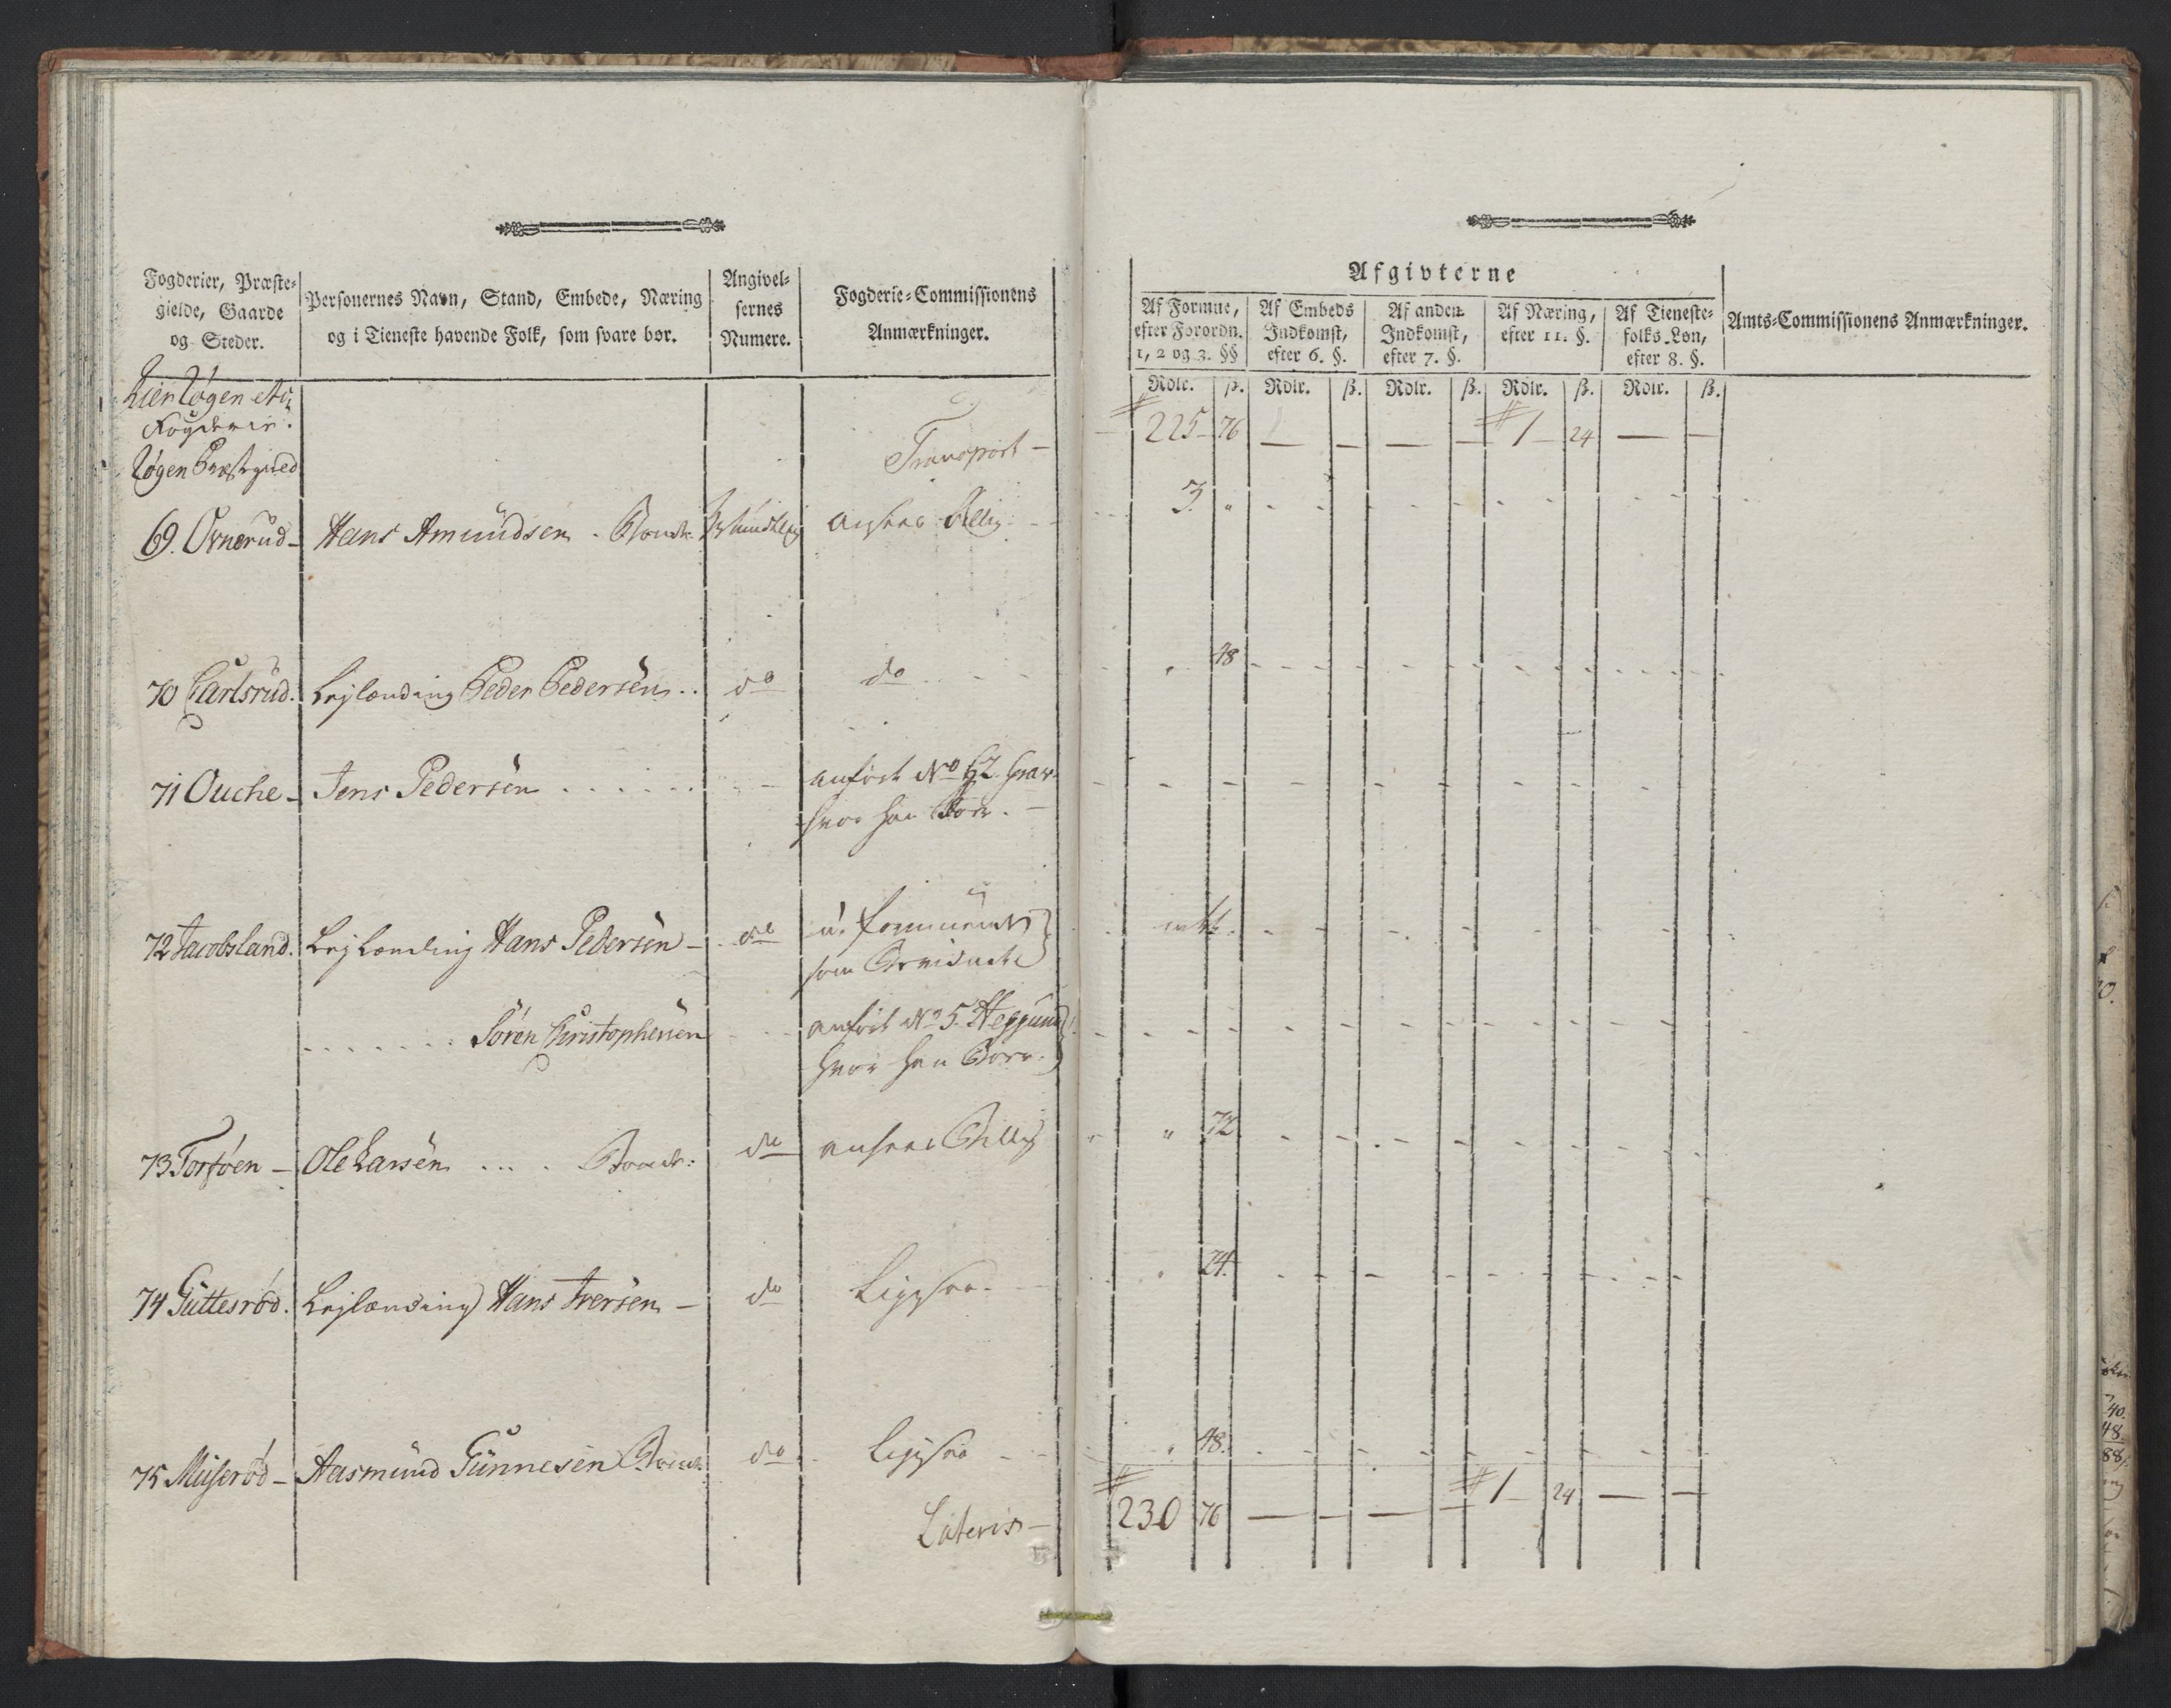 Fogderier, Præste-
gielde, Gaarde
og Steder.
Personernes Navn, Stand, Embede, Næring
og i Tieneste havende Folk, som svare bør.
Angivel-
sernes
Numere.
Fogderie-Commissionens
Anmærkninger.
Afgivterne
Af Formue,
efter Forordn.
1, 2 og 3. §§
Af Embeds
Indkomst,
efter 6. §.
Af anden
Indkomst,
efter 7. §.
Af Næring,
efter 11. §.
Af Tieneste-
folks Løn,
efter 8. §.
Amts-Commissionens Anmærkninger.
Rdlr. ß. Rdlr. ß. Rdlr. ß. Rdlr. ß. Rdlr. ß.
Fogderie.
Løgen Præstegield
Transport — 225 76 — — — — 1 24 — —
69. Ovnerud — Hans Amundsen . Bonde Mundtlig ansees Billig 3. "
70 Carlsrud. Lejlænding Peder Pedersen .. do do " 48
71 Ouche — Jens Pedersen . . . . . . anført No 62
hvor han Boer. —
72 Jacobsland. Lejlænding Hans Pedersen — do u. formuende
som
. . . . . . . Sören Christophersen anført No 5.
hvor han Boer.
73 Torföen — Ole Larsen ... . Bonde: do ansees Billig " 72
74 Guttesröd. Lejlænding Hans Iversen — do Ligesaa. " 24.
75 Museröd — Aasmund Gunnesen Bonde do Ligesaa " 48.
Lateris — 230 76 — — — — 1 24 — —